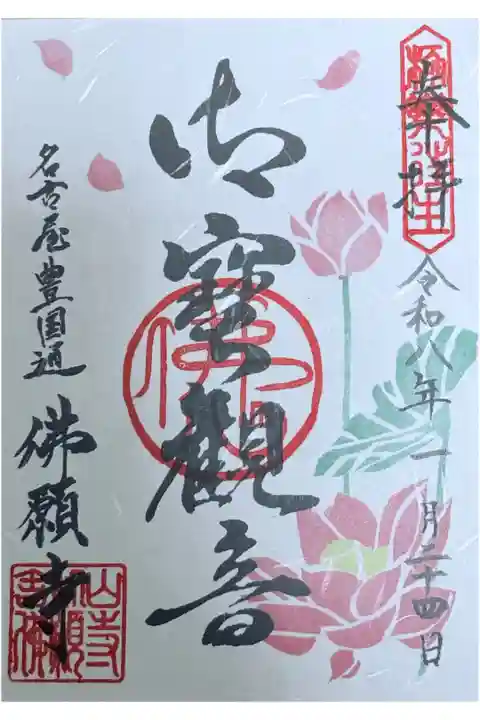 奉拝
令和八年一月二十四日
御寳觀音
名古屋豊国通
佛願寺